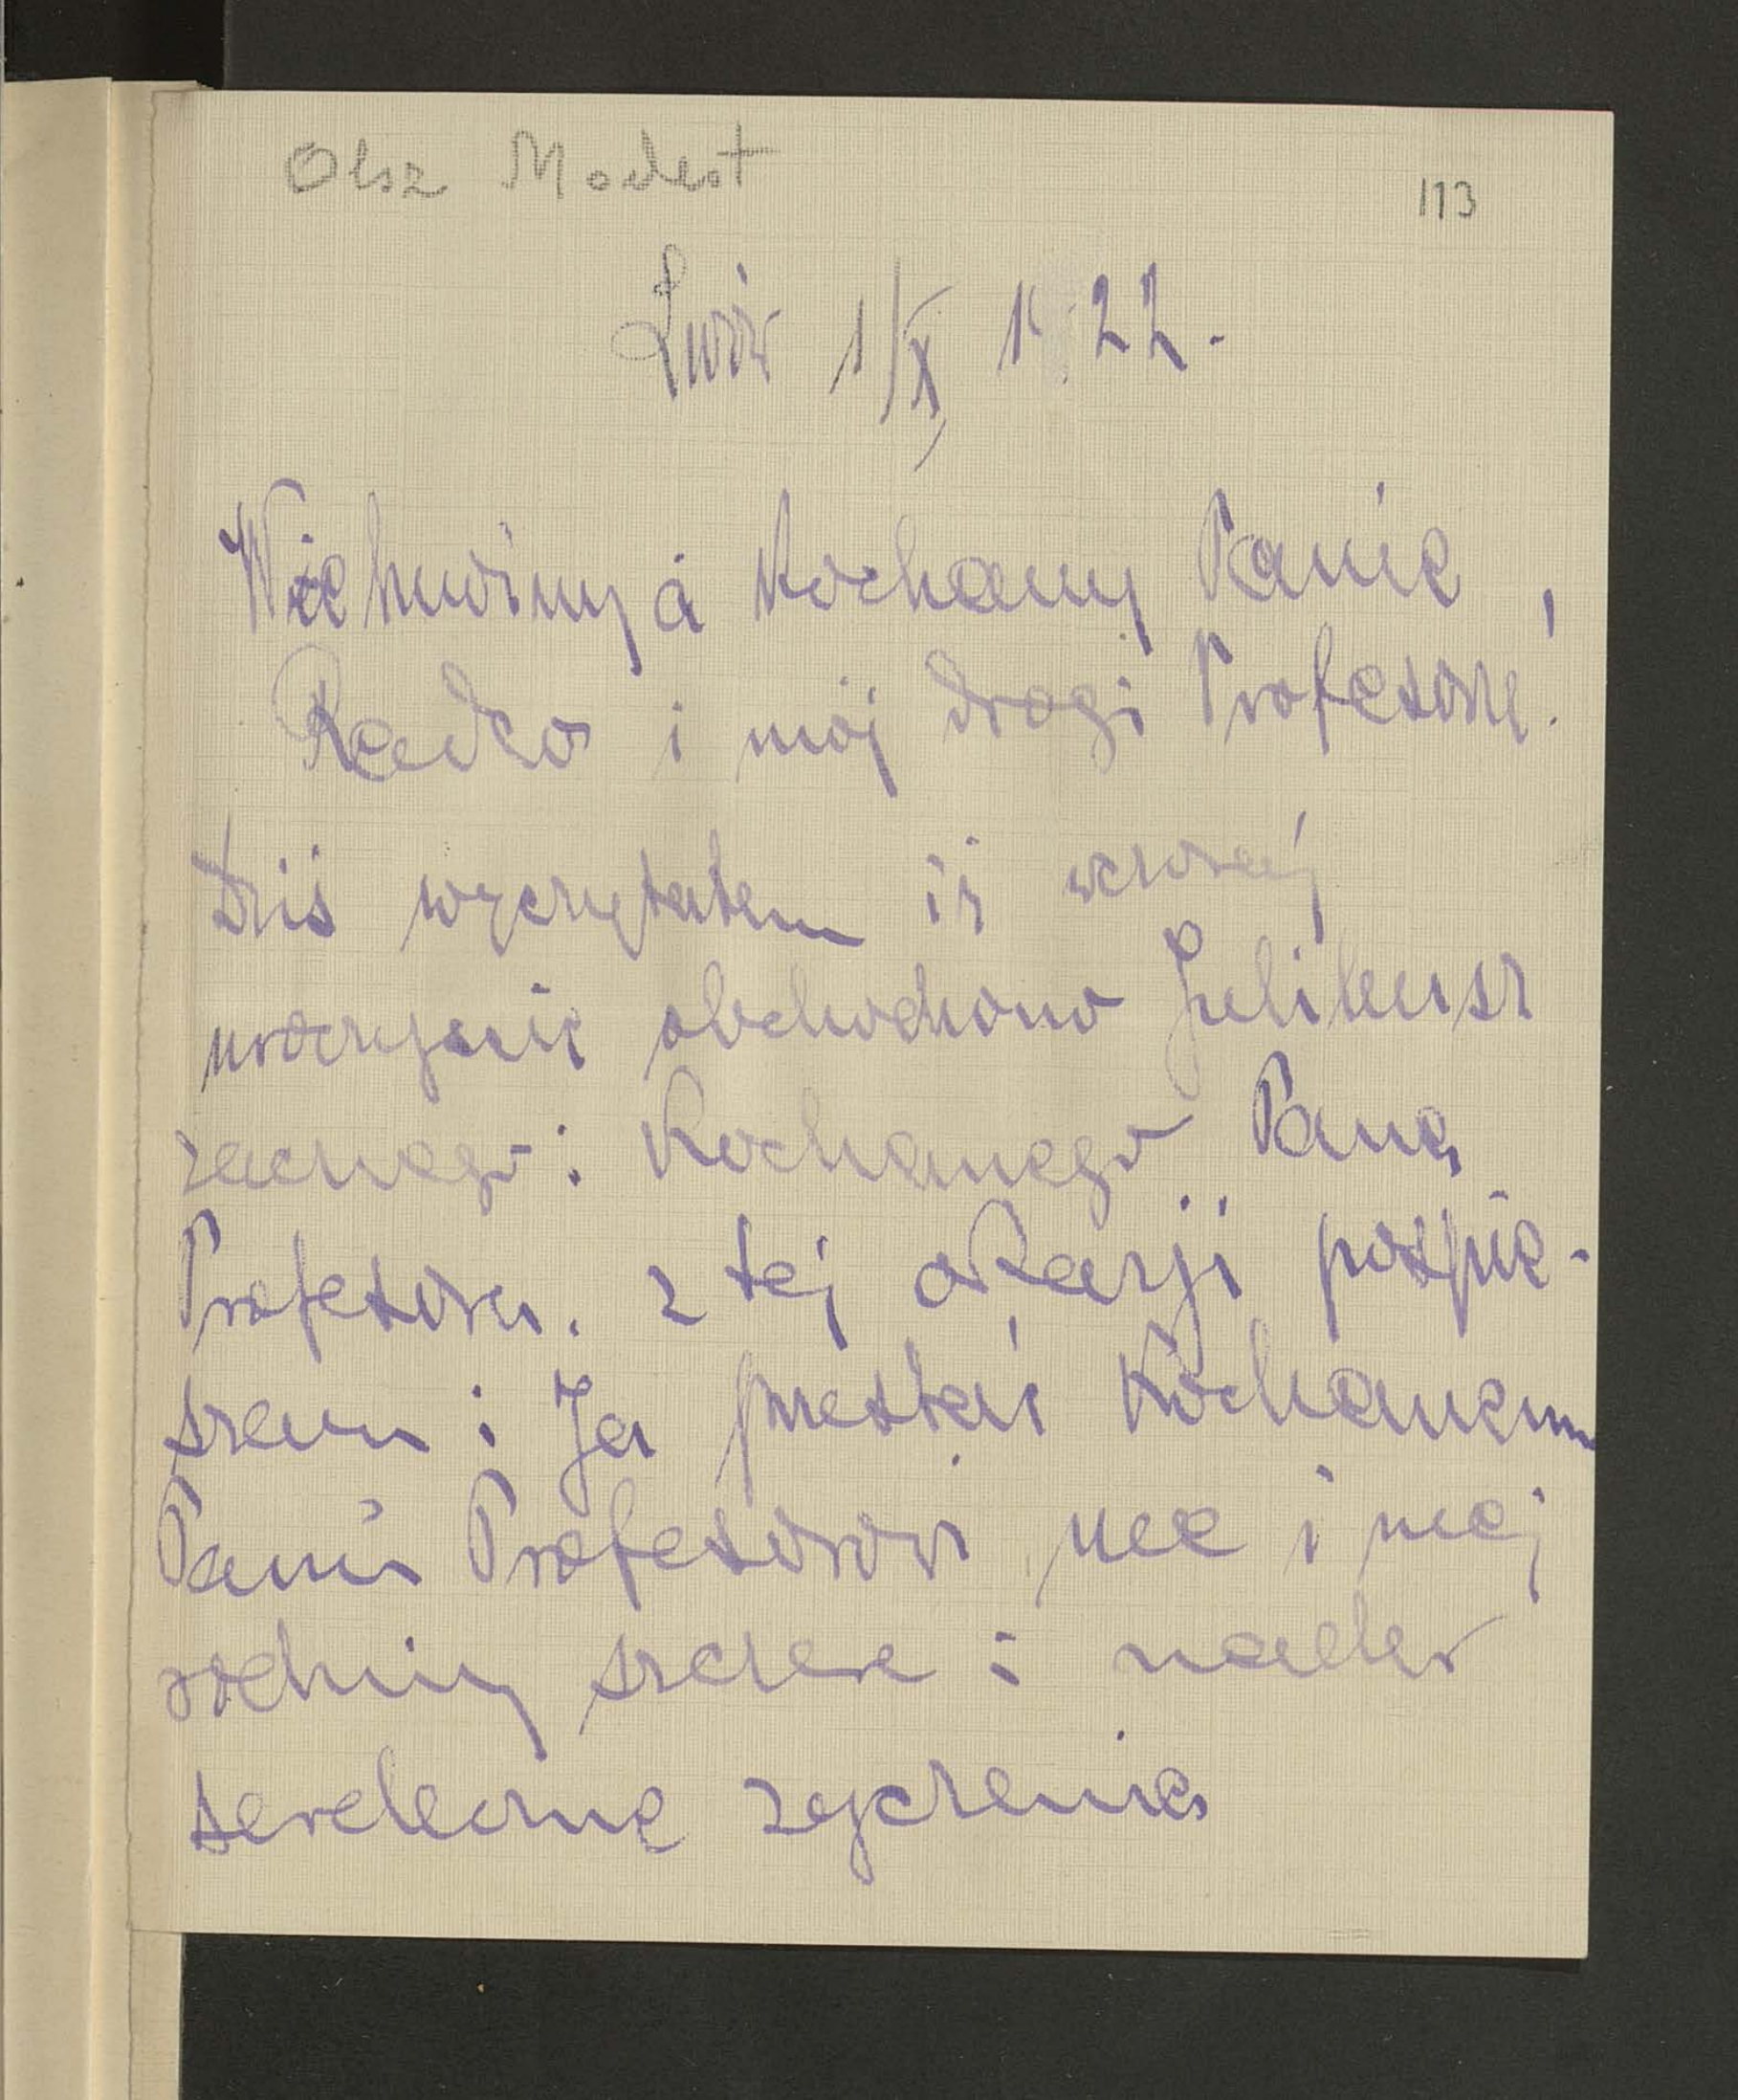 Olsz Modest
113
Lwów 1/X 1922.
Kochany Panie,
Radco i mój drogi Profesorze!
Dziś wyczytałem iż wczoraj
uroczyście obchodzono Jubileusz
zacnego i Kochanego Pana
Profesora. z tej okazji pospie-
szam i Ja przesłać Kochanemu
Panu Profesorowi me i mej
rodziny szczere i nader
serdeczne życzenia